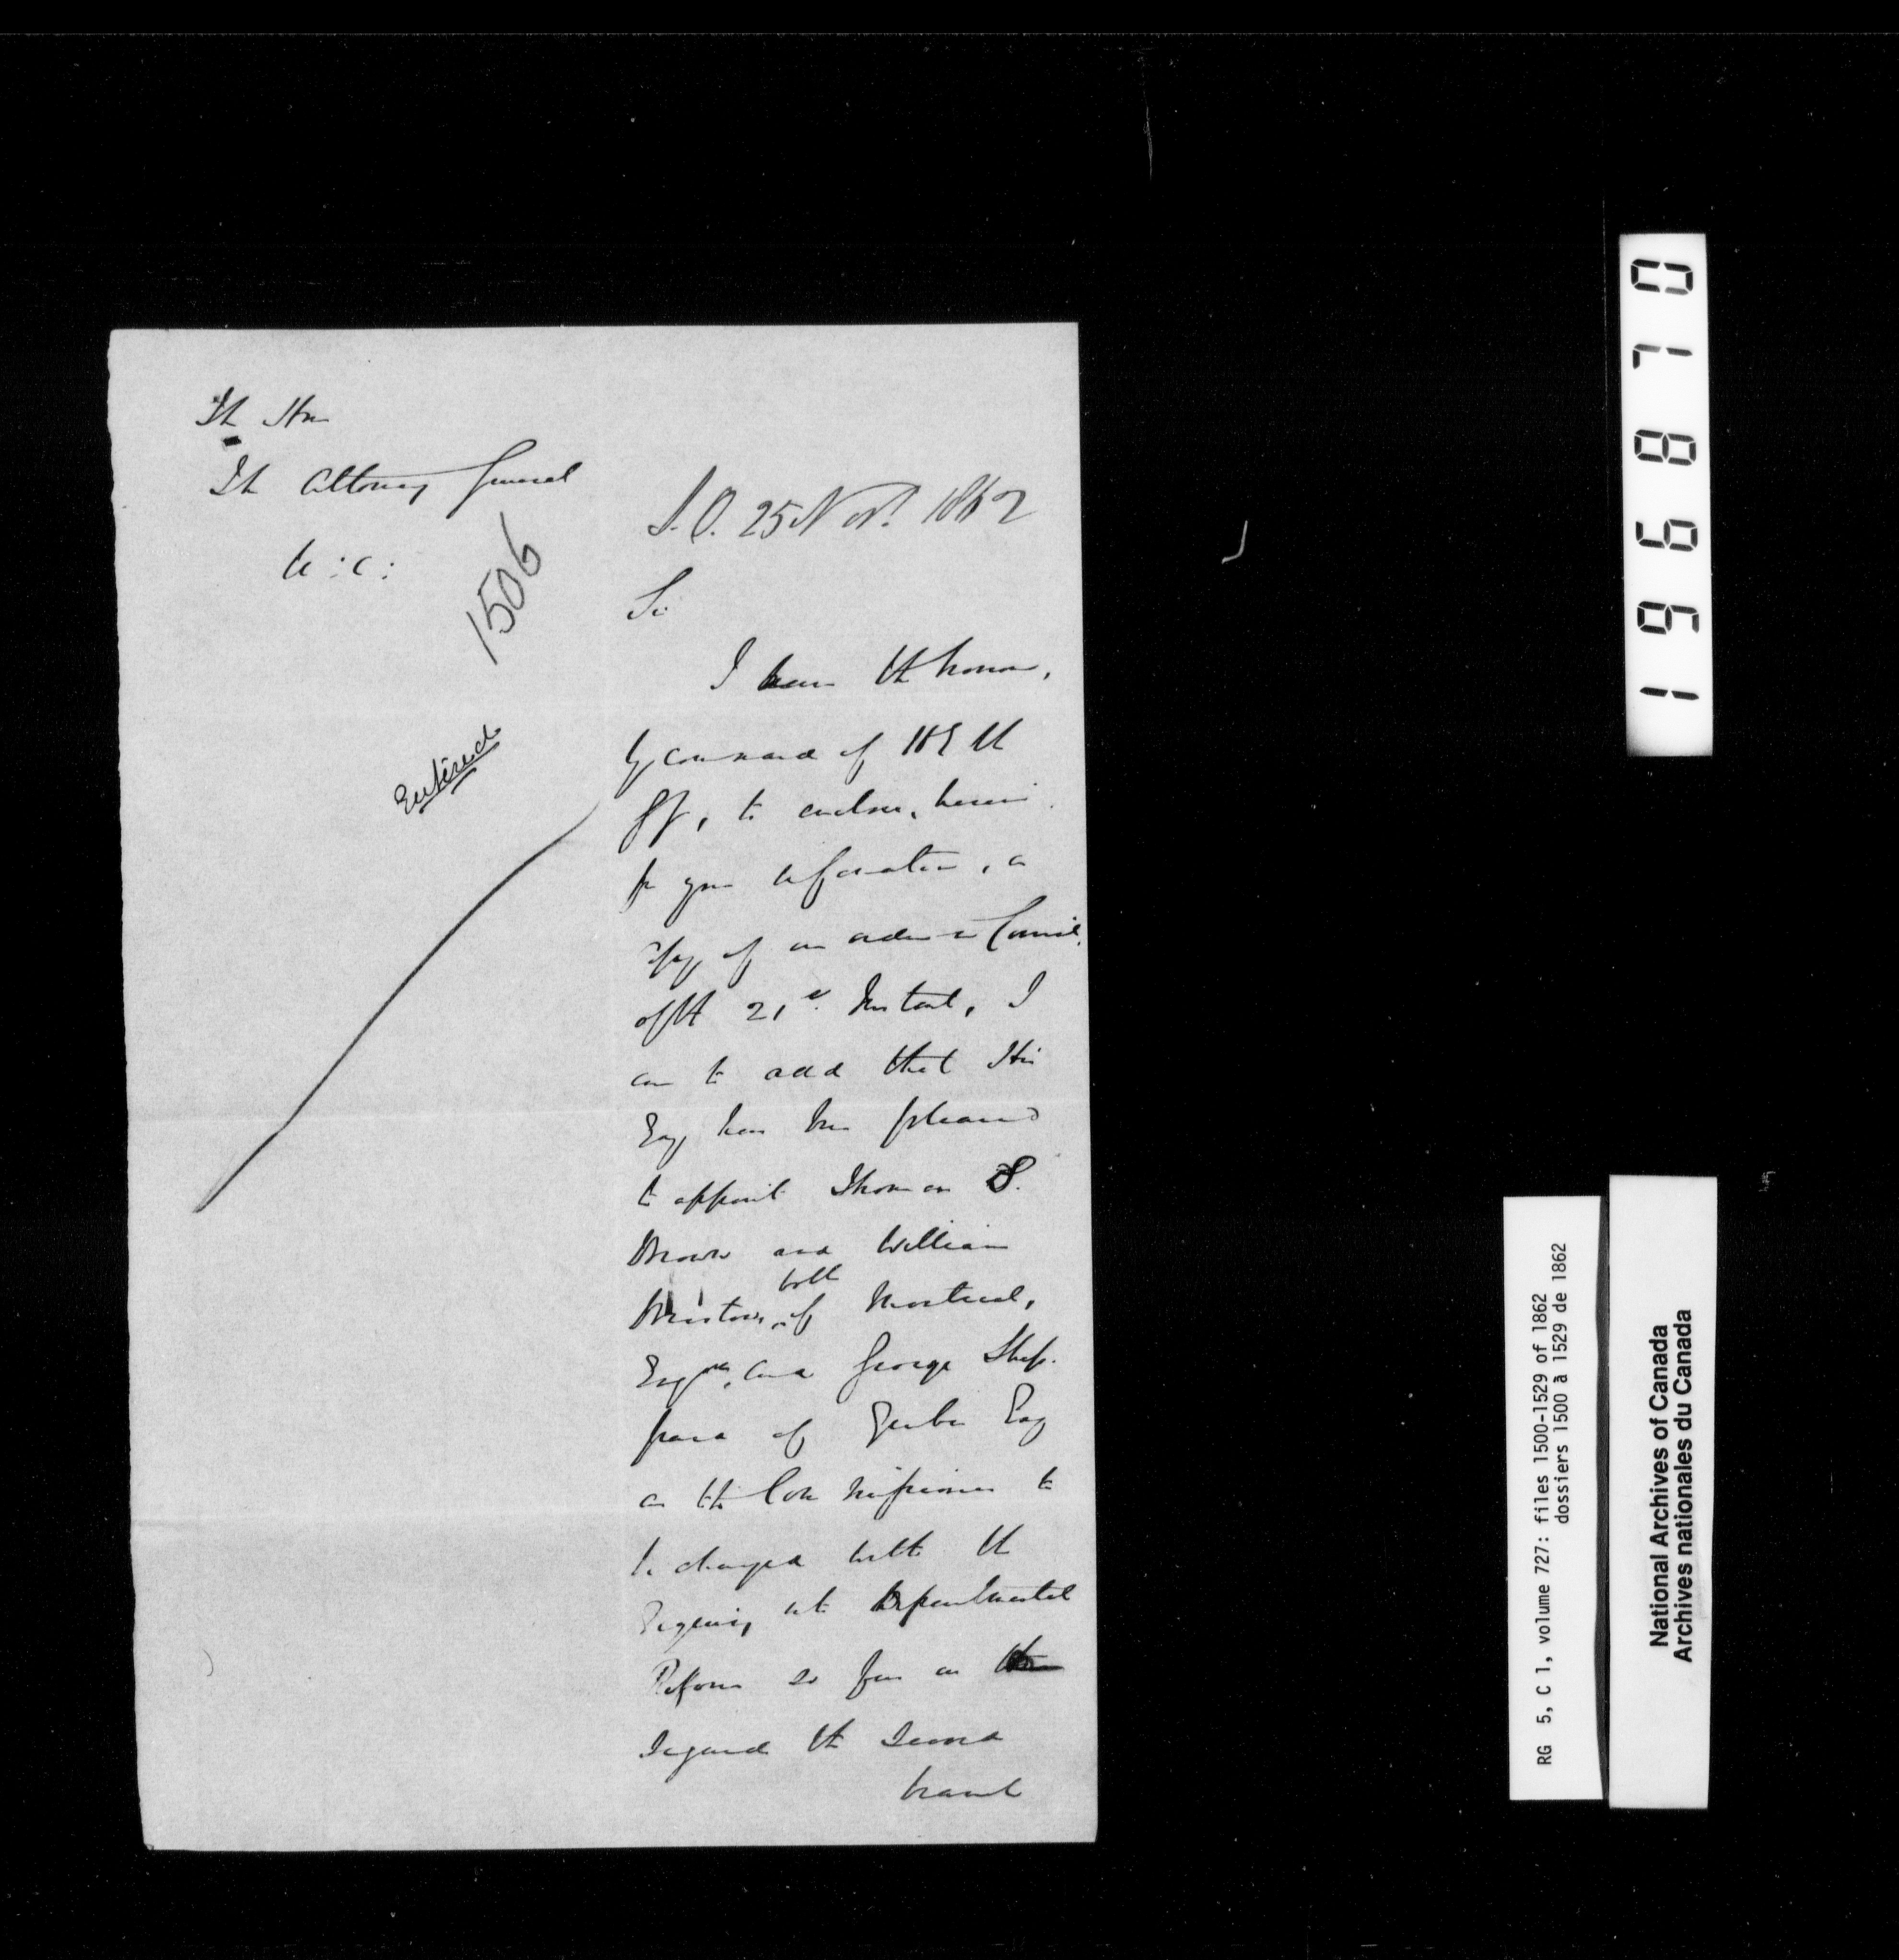 The Hon
The Attorney General
U : C :
1506
S. O. 25 Nov. 1862
Sir
Entered
I have the honor,
by command of H E the
GG, to enclose, herein
for your information, a
copy of an order in Council
of the 21st Instant, I
am to add that His
Exy has been pleased
to appoint Thomas S.
Brown and William
Bristow, both of Montreal,
Esqres, and George Shep-
pard of Quebec Esq
as the Commissioners to
be charged with the
Enquiry into Departmental
Reform so far as
regards the second
branch
196870
RG 5, C 1, volume 727: files 1500-1529 of 1862
dossiers 1500 à 1529 de 1862
National Archives of Canada
Archives nationales du Canada